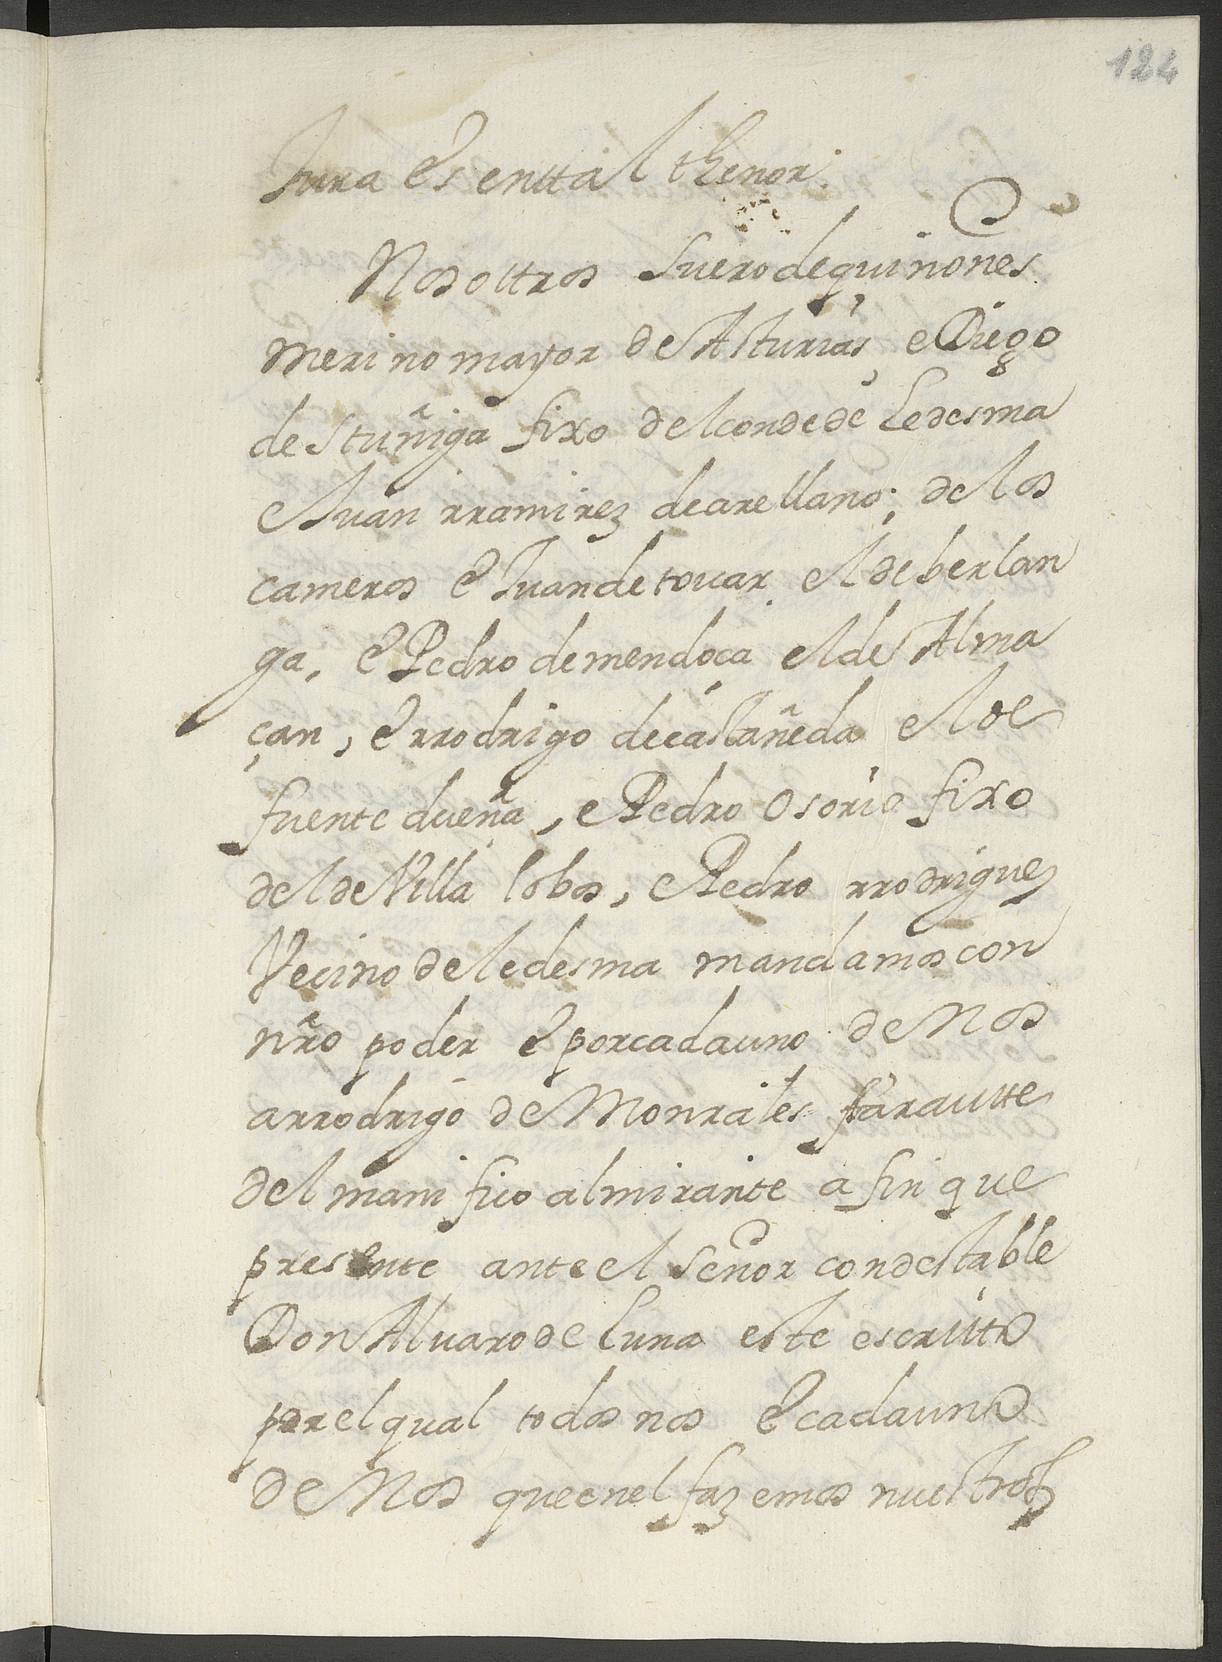 124
Jura es en ttal thenor.
Nosottros Suero de quiñones
merino mayor de Asturias, e Diego
de Stuñiga fixo del conde de Ledesma
e Juan rramirez de arellano, de los
cameros e Juan de touar el de berlan
ga, e Pedro de mendoça el de Alma
çan, e rrodrigo de castañeda el de
fuente dueña, e Pedro Osorio fixo
del de Villa lobos, e Pedro rrodriguez
Vecino de ledesma mandamos con
nr̃o poder e por cada uno de Nos
a rrodrigo de Monrales farautte
del manifico almirante a fin que
presente ante el señor condestable
Don Alvaro de luna este escritto
por el qual todos nos e cada uno
de Nos que en el fazemos nuestros